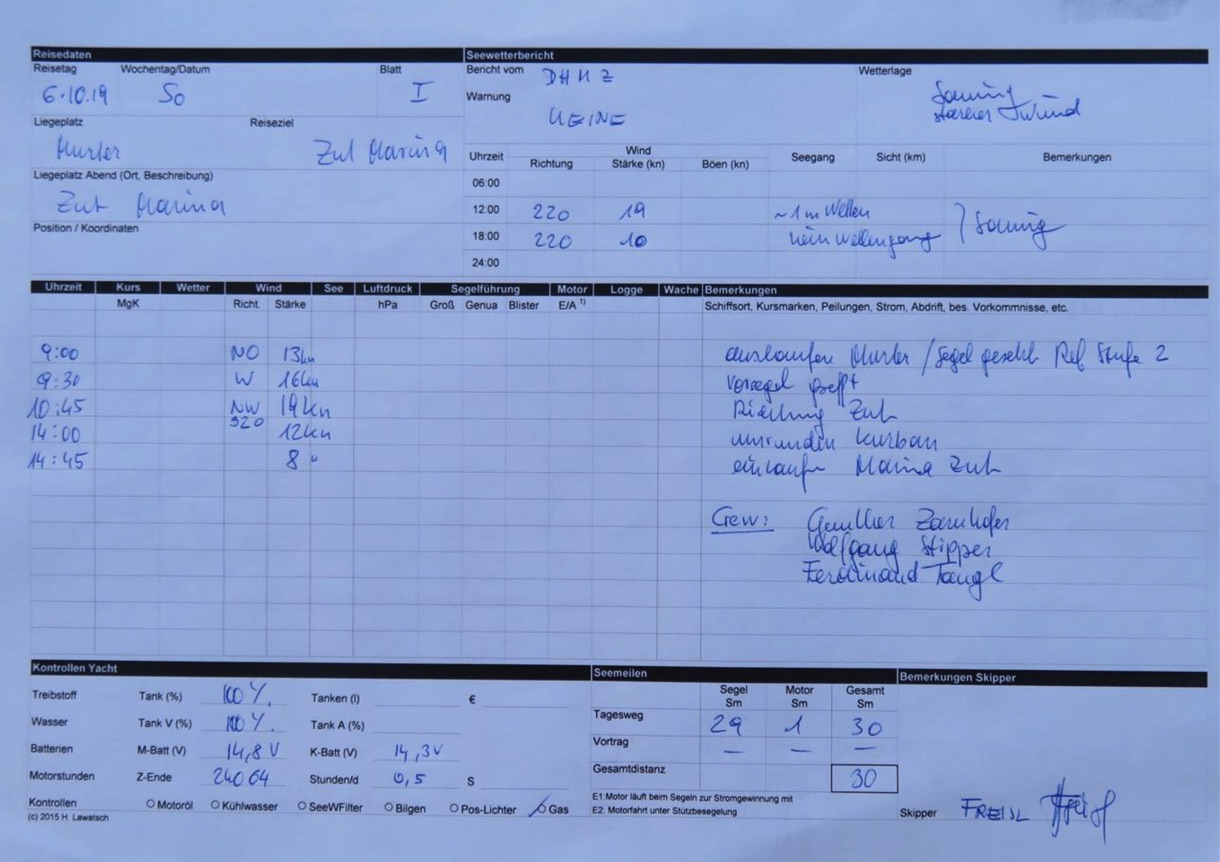 Reisedaten
Reisetag Wochentag/Datum Blatt
6.10.19 So I
Liegeplatz Reiseziel
Murter Zut Marina
Liegeplatz Abend (Ort, Beschreibung)
Zut Marina
Position / Koordinaten
Seewetterbericht
Bericht vom DHMZ
Warnung
KEINE
Wetterlage
Sonnig
Wind
Uhrzeit Richtung Stärke (kn) Böen (kn) Seegang Sicht (km) Bemerkungen
06:00
12:00 220 19 ~1m Wellen
18:00 220 10 kein Wellengang } Sonnig
24:00
Uhrzeit Kurs Wetter Wind See Luftdruck Segelführung Motor Logge Wache Bemerkungen
MgK Richt. Stärke hPa Groß Genua Blister E/A 1) Schiffsort, Kursmarken, Peilungen, Strom, Abdrift, bes. Vorkommnisse, etc.
9:00 NO 13kn auslaufen Murter / Segel gesetzt Ref Stufe 2
9:30 W 16kn Vorsegel gerefft
10:45 NW 19kn Richtung Zut
320
14:00 12kn umrunden Kurban
14:45 8 " einlaufen Marina Zut
Crew: Zarnhofer
Wolfgang Stipper
Ferdinand Tangl
Kontrollen Yacht
Treibstoff Tank (%) 100 % Tanken (l) €
Wasser Tank V (%) 100 % Tank A (%)
Batterien M-Batt (V) 14,8 V K-Batt (V) 14,3V
Motorstunden Z-Ende 24064 Stunden/d 0,5 S
Kontrollen Motoröl Kühlwasser SeeWFilter Bilgen Pos-Lichter Gas
(c) 2015 H. Lawatsch
Seemeilen
Segel Motor Gesamt
Sm Sm Sm
Tagesweg 29 1 30
Vortrag — — —
Gesamtdistanz 30
E1.Motor läuft beim Segeln zur Stromgewinnung mit
E2. Motorfahrt unter Stützbesegelung
Bemerkungen Skipper
Skipper FREISL